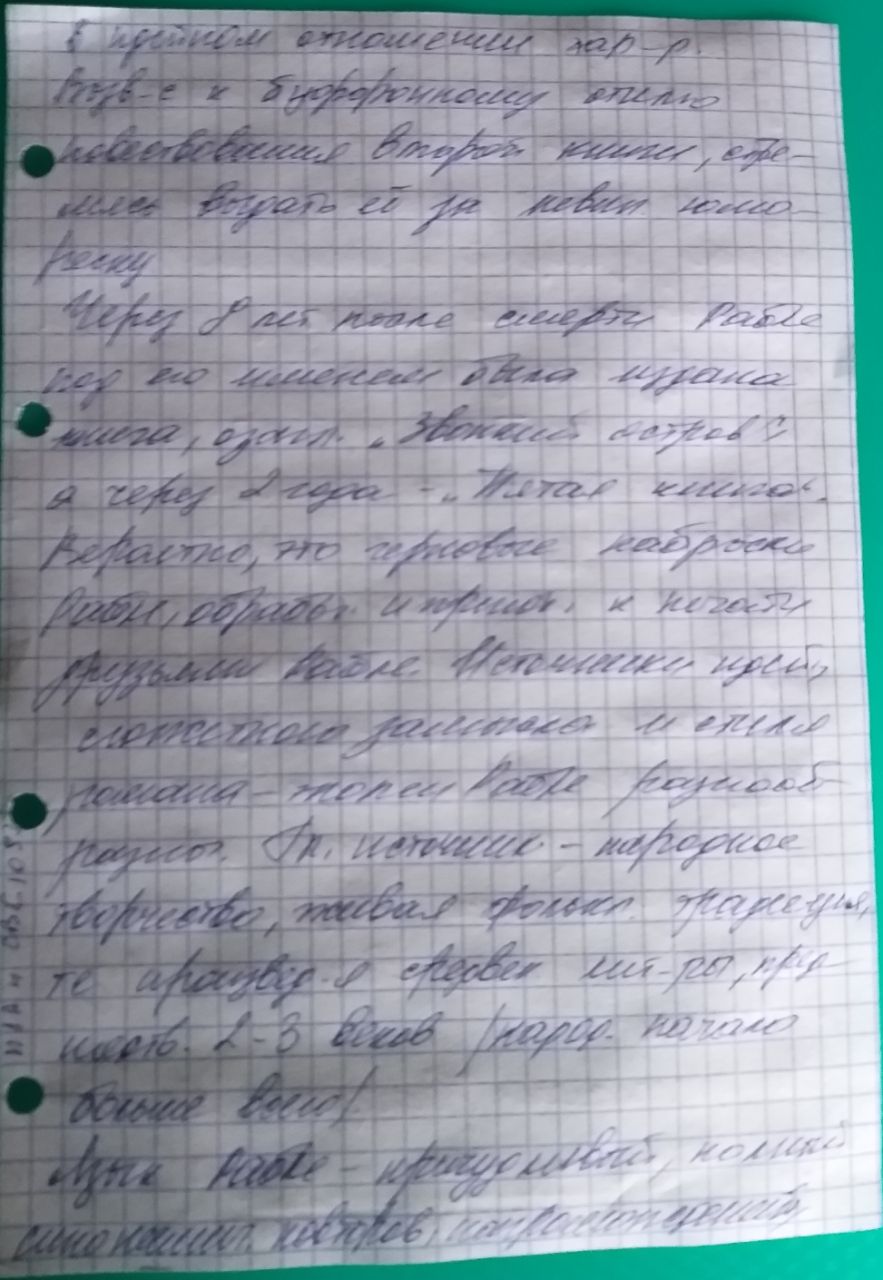 в идейном отношении хар-р.
Возв-е к буффонному стилю
повествования второй книги, стре-
мясь выдать её за невин. юмо-
реску
Через 8 лет после смерти Рабле
под его именем была издана
книга, озагл. „Звонкий остров",
а через 2 года - „Пятая книга".
Вероятно, это черновые наброски
Рабле, обработ. и пригот. к печати
друзьями Рабле. Источники идей,
сюжетного замысла и стиля
романа - эпопеи Рабле разнооб-
разны. Гл. источник - народное
творчество, живая фольк. традиция,
те произвед-я средвек лит-ры, пред-
шеств. 2-3 веков /народ. начало
больше всего/.
Язык Рабле - причудливый, полный
синонимич. повторов,